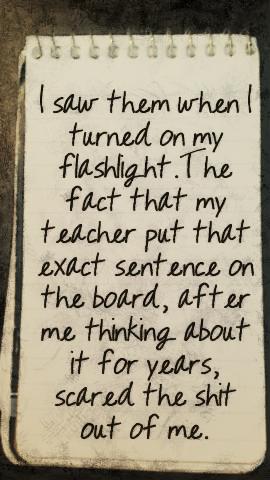 I saw them when I
turned on my
flashlight. The
fact that my
teacher put that
exact sentence on
the board, after
me thinking about
it for years,
scared the shit
out of me.